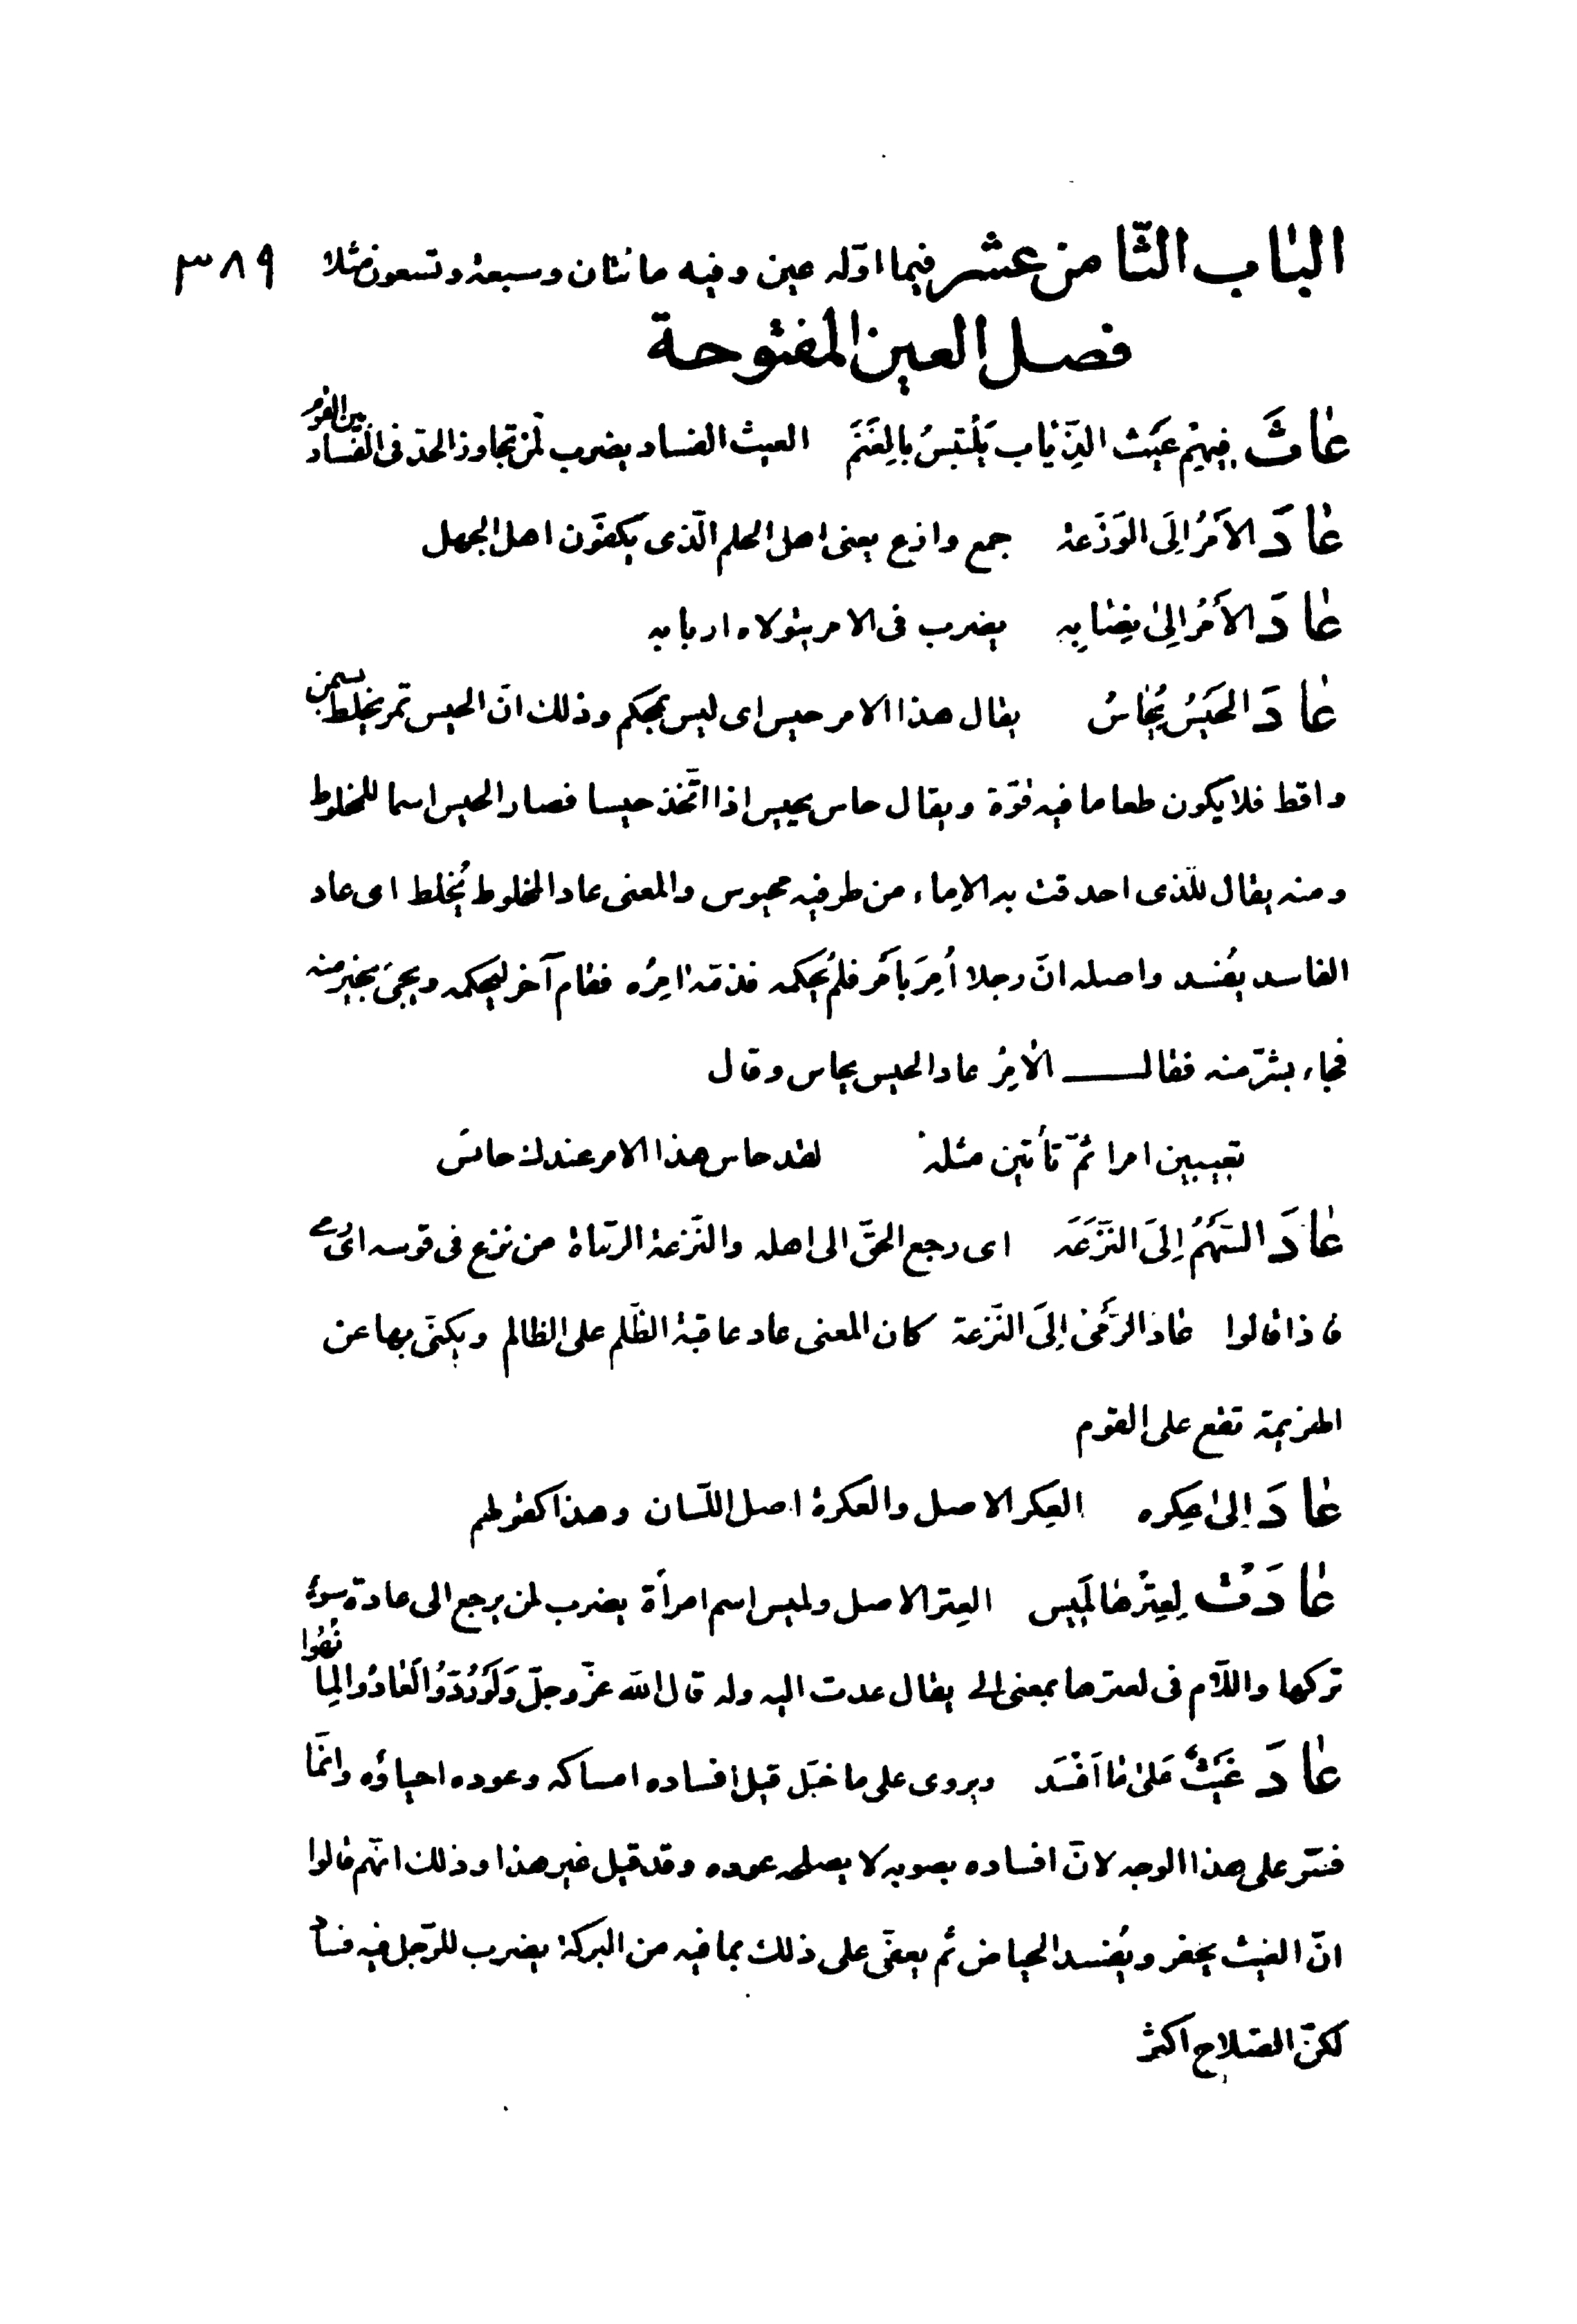 الباب الثّامن عشر فيما اوّله عين وفيه مائتان وسبعة وتسعون مثلا ٣٨٩
فصل العين المفتوحة
عاثَ فيهِمْ عَيْثَ الذِّئابِ يَلْتَبِسُ بِالغَنَمِ العيث الفساد يضرب لمن تجاوز الحدّ فى الفساد بين القوم
عادَ الاَمْرُ اِلَى الوَزَعَة جمع وازع يعنى اهل الحلم الّذى يكفّون اهل الجهل
عادَ الاَمْرُ اِلى نِصابِه يضرب فى الامر يتولاه اربابه
عادَ الحَيْسُ يُحاسُ يقال هذا الامر حيس اى ليس بمحكم وذلك انّ الحيس تمر يخلط بسمن
واقط فلا يكون طعاما فيه قوّة ويقال حاس يحيس اذا اتّخذ حيسا فصار الحيس اسما للمخلوط
ومنه يقال للّذى احدقت به الاِماء من طرفيه محيوس والمعنى عاد المخلوط يُخلط اى عاد
الفاسد يُفسد واصله انّ رجلا اُمِرَ بِاَمْر فلم يُحكمه فذمّه امِرُه فقام آخر ليحكمه ويجىَ بخير منه
فجاء بشرّ منه فقال الآمِرُ عاد الحيس يحاس وقال
تعيبين امرا ثمّ تأتين مثلهُ لقد حاس هذا الامر عندك حائس
عادَ السَّهْمُ اِلَى النَّزَعَه اى رجع الحقّ الى اهله والنَّزعة الرّماة من نزع فى قوسه اى رمى
فاذا قالوا عادَ الرَّمْىُ اِلَى النَّزَعة كان المعنى عاد عاقبة الظّلم على الظالم ويكنّى بها عن
الهزيمة تقع على القوم
عادَ اِلى عِكره العِكر الاصل والعكرة اصل اللّسان وهذا كقولهم
عادَتْ لِعِتْرِها لَمِيس العتر الاصل ولميس اسم امرأة يضرب لمن يرجع الى عادة سوء
تركها واللّام فى لعترها بمعنى الى يقال عدت اليه وله قال الله عزّ وجلّ وَلَوْ رُدُّوا لَعادُوا لِما نُهُوا
عادَ غَيْثٌ عَلى ما اَفْسَدَ ويروى على ما خبّل قيل افساده امساكه وعوده احياؤه وانّما
فسّر على هذا الوجه لانّ افساده يصوبه لا يصلحه عوده وقد قيل غير هذا وذلك انّهم قالوا
انّ الغيث يحفر ويُفسد الحياض ثم يعفّى على ذلك بما فيه من البركة يضرب للرّجل فيه فساد
لكنّ الصّلاح اكثر